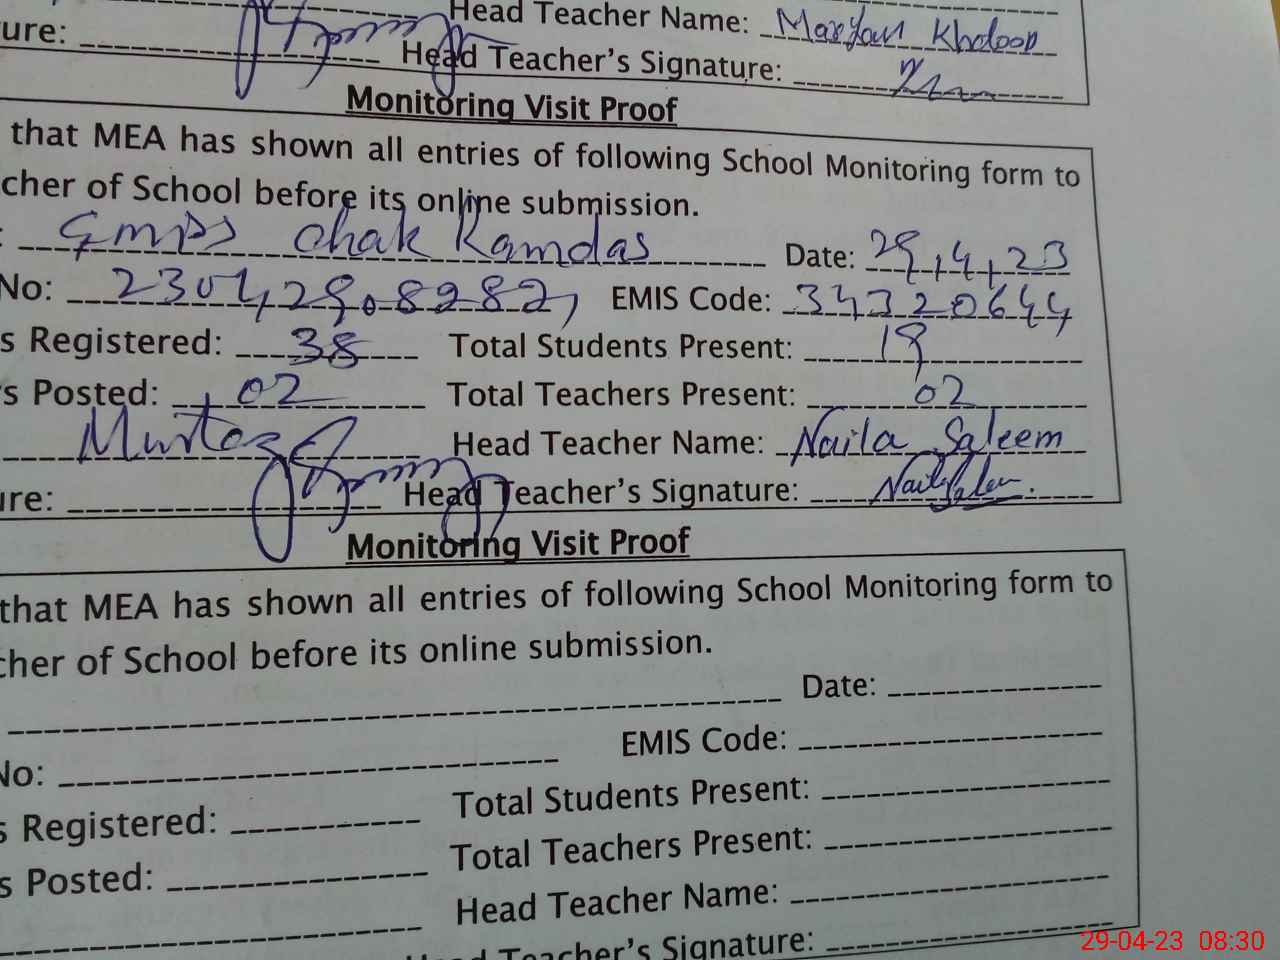 Head Teacher Name: Maryam Kholoop
ure: Head Teacher's Signature:
Monitoring Visit Proof
that MEA has shown all entries of following School Monitoring form to
cher of School before its online submission.
: GMPS Chak Ramdas Date: 29,4,23
No: 230429.8282, EMIS Code: 34320644
s Registered: 38 Total Students Present: 19
s Posted: 02 Total Teachers Present: 02
Murtaza Head Teacher Name: Naila Saleem
ure: Head Teacher's Signature: Naila Saleem.
Monitoring Visit Proof
that MEA has shown all entries of following School Monitoring form to
cher of School before its online submission.
Date:
No: EMIS Code:
s Registered: Total Students Present:
s Posted: Total Teachers Present:
Head Teacher Name:
Head Teacher's Signature:
29-04-23 08:30